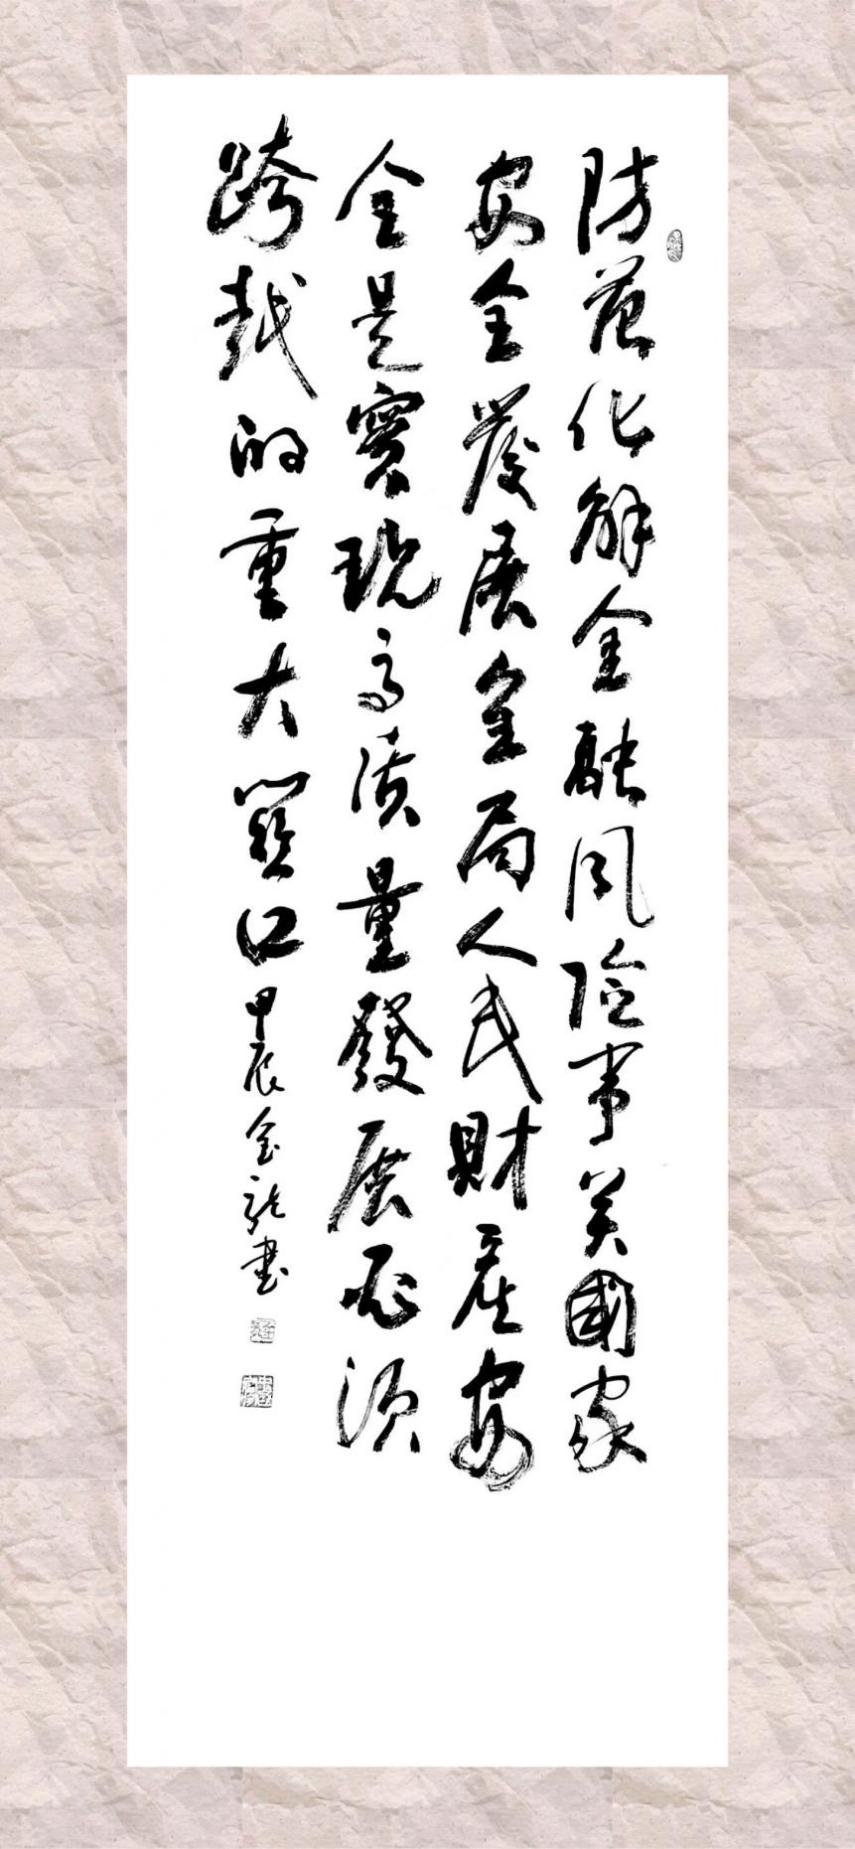 防范化解金融风险事关國家
安全發展全局人民財產安
全是實現高质量發展必须
跨越的重大關口甲辰金龍書